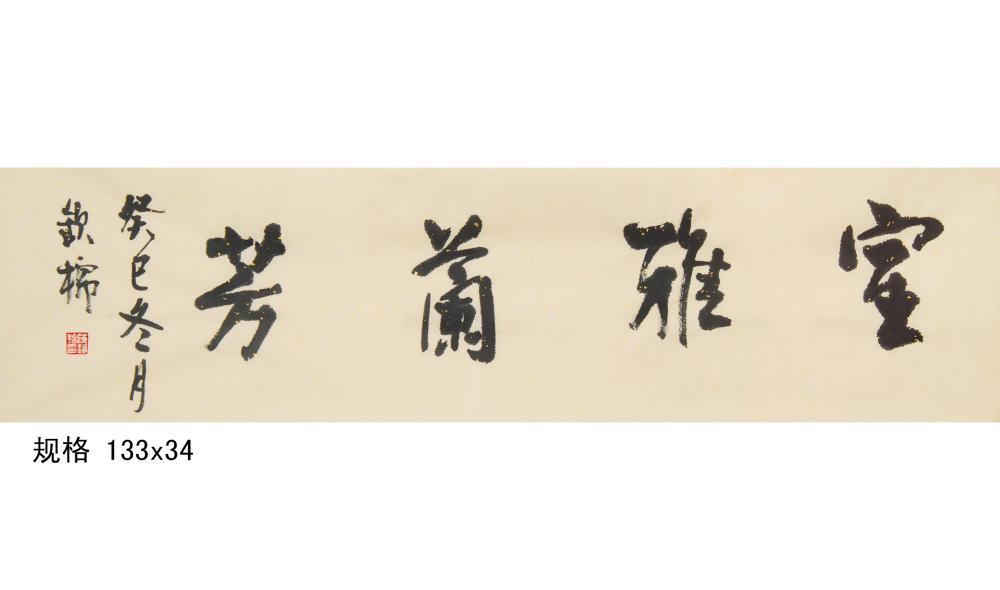 室雅蘭芳
癸巳冬月
欽
规格 133x34